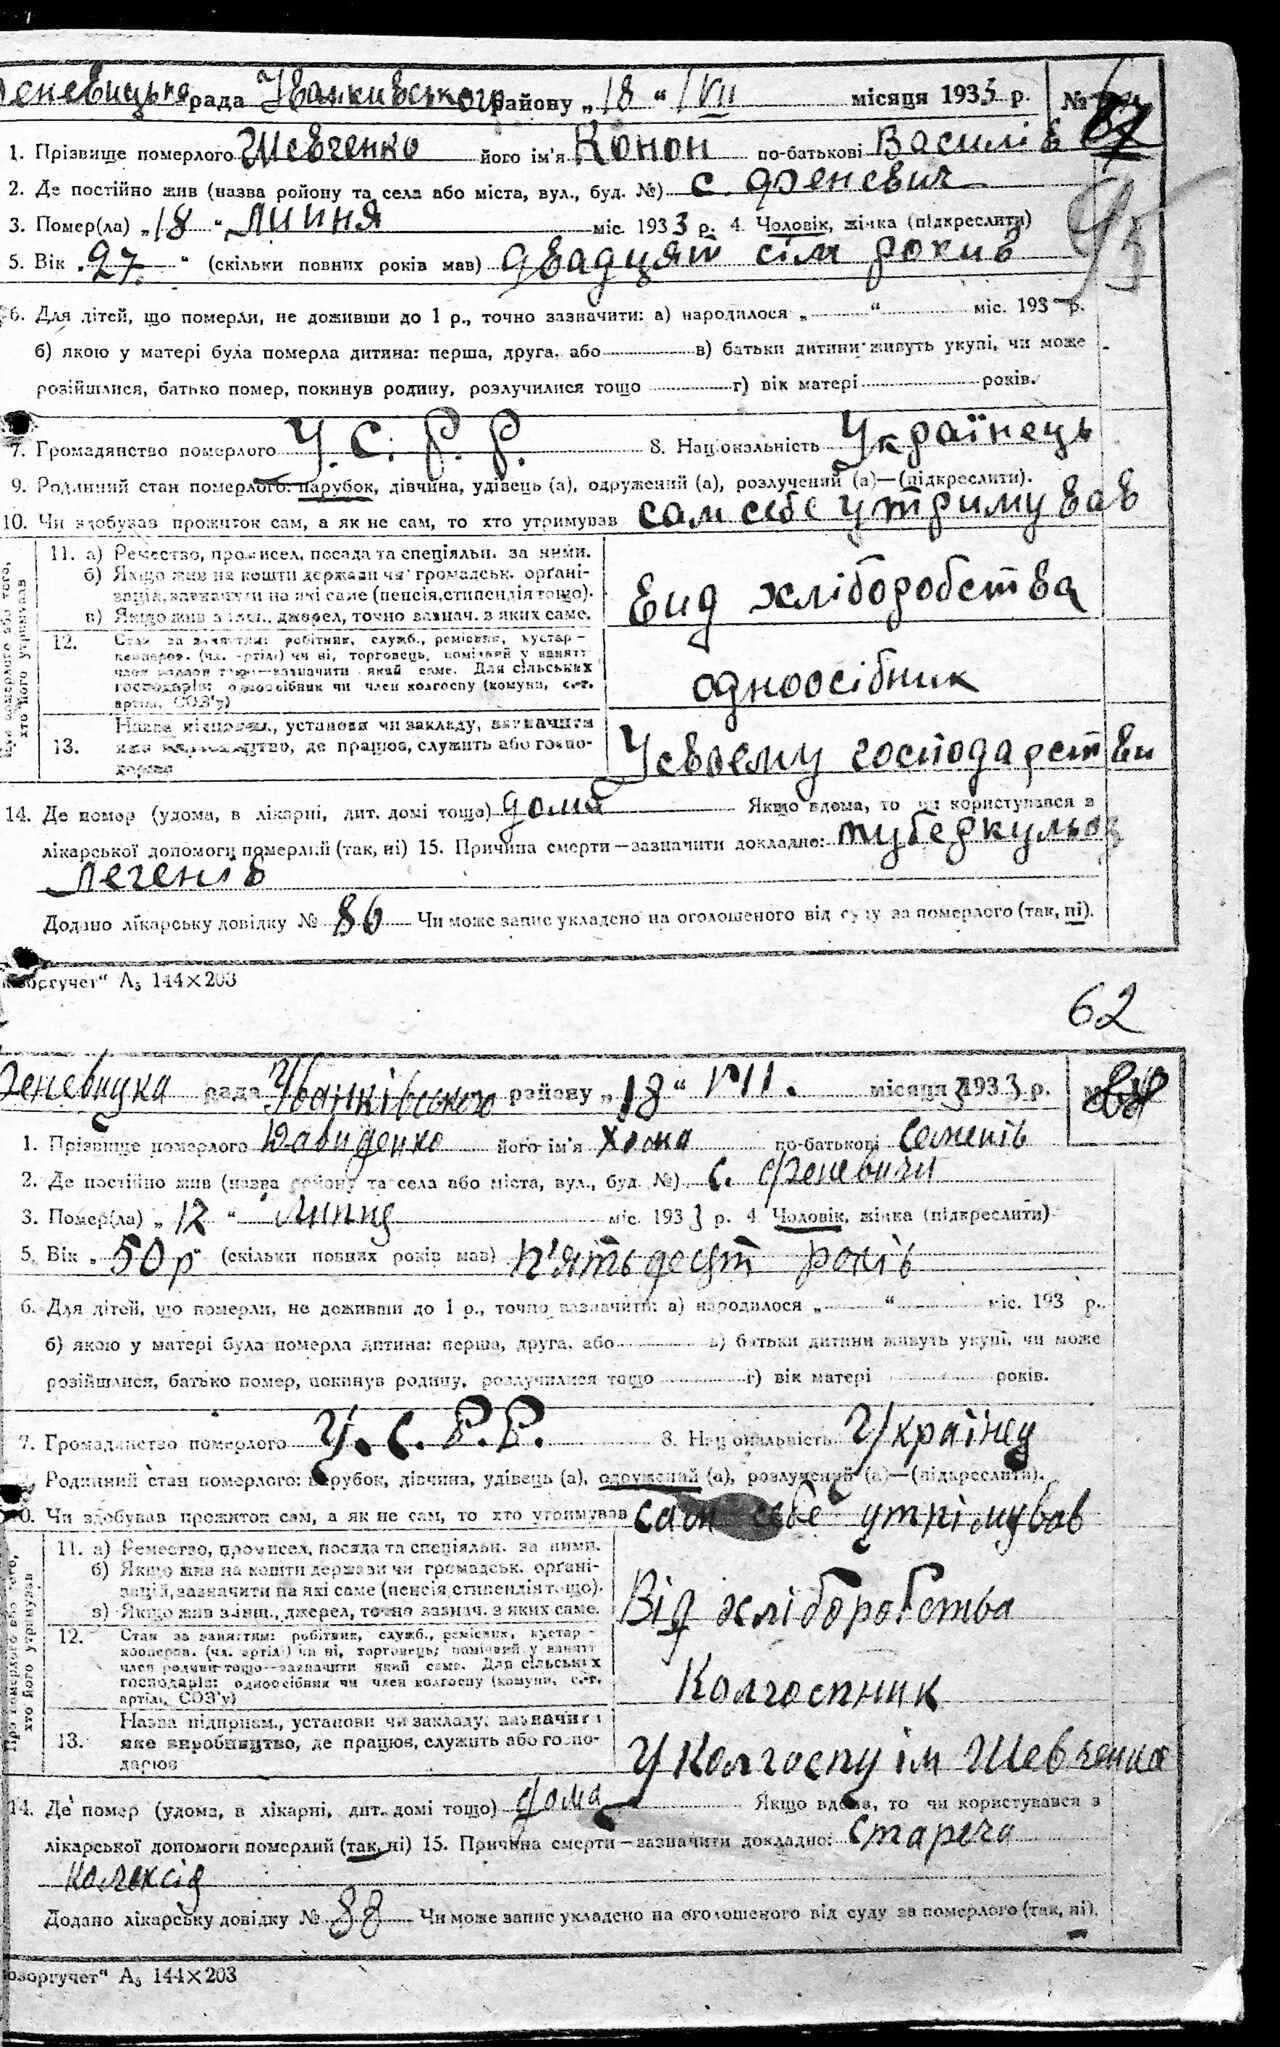 Феневицька рада Іванкивського району „18“ VII місяця 1933 р. № 67
1. Прізвище померлого Шевченко його ім'я Конон по-батькові Василів
2. Де постійно жив (назва ройону та села або міста, вул., буд. №) с. Феневич
95
3. Помер(ла) „18“ липня міс. 1933 р. 4. Чоловік, жінка (підкреслити)
5. Вік „27“ (скільки повних років мав) двадцят сім рокив
6. Для дітей, що померли, не доживши до 1 р., точно зазначити: а) народилося „ “ міс. 193 р.
б) якою у матері була померла дитина: перша, друга, або в) батьки дитини живуть укупі, чи може
розійшлися, батько помер, покинув родину, розлучилися тощо г) вік матері років.
7. Громадянство померлого У.С.Р.Р. 8. Національність Українець
9. Родинний стан померлого: парубок, дівчина, удівець (а), одружений (а), розлучений (а)—(підкреслити).
10. Чи здобував прожиток сам, а як не сам, то хто утримував сам себе утримував
11. а) Ремество, промисел, посада та спеціяльн. за ними.
б) Якщо жив на кошти держави чи громадськ. органі-
зацій, зазначити на які саме (пенсія, стипендія тощо).
в) Якщо жив з інш., джерел, точно зазнач. з яких саме.
вид хліборобства
12. Стан за заняттям: робітник, служб., ремісник, кустар-
кооперов. (чл. артілі) чи ні, торговець, помічний у занятті
член родини тощо—зазначити який саме. Для сільських
господарів: одноосібник чи член колгоспу (комуни, с.-г.
артілі, СОЗ'у)
одноосібник
13. Назва підприєм., установи чи закладу, визначити
яке виробництво, де працює, служить або госпо-
дарює
У своему господарстви
14. Де помер (удома, в лікарні, дит. домі тощо) дома Якщо вдома, то чи користувався з
лікарської допомоги померлий (так, ні) 15. Причина смерти—зазначити докладно: туберкульоз
легенів
Додано лікарську довідку № 86 Чи може запис укладено на оголошеного від суду за померлого (так, ні).
оргучет“ А₅ 144×203
62
Феневицка рада Іванківського району „18“ VII. місяця 1933 р.
1. Прізвище померлого Давиденко його ім'я Хома по-батькові Семенів
2. Де постійно жив (назва ройону та села або міста, вул., буд. №) с. Феневичи
3. Помер(ла) „12“ Липця міс. 1933 р. 4. Чоловік, жінка (підкреслити)
5. Вік „50р“ (скільки повних років мав) п'ятьдесят років
6. Для дітей, що померли, не доживши до 1 р., точно зазначити: а) народилося „ “ міс. 193 р.
б) якою у матері була померла дитина: перша, друга, або в) батьки дитини живуть укупі, чи може
розійшлися, батько помер, покинув родину, розлучилися тощо г) вік матері років.
7. Громадянство померлого У.С.Р.Р. 8. Національність Українец
Родинний стан померлого: парубок, дівчина, удівець (а), одружений (а), розлучений (а)—(підкреслити).
10. Чи здобував прожиток сам, а як не сам, то хто утримував сам себе утрімував
11. а) Ремество, промисел, посада та спеціяльн. за ними.
б) Якщо жив на кошти держави чи громадськ. органі-
зацій, зазначити на які саме (пенсія, стипендія тощо).
в) Якщо жив з інш., джерел, точно зазнач. з яких саме.
Від хліборобства
12. Стан за заняттям: робітник, служб., ремісник, кустар-
кооперов. (чл. артілі) чи ні, торговець, помічний у занятті
член родини тощо—зазначити який саме. Для сільських
господарів: одноосібник чи член колгоспу (комуни, с.-г.
артілі, СОЗ'у)
Колгоспник
13. Назва підприєм., установи чи закладу, визначити
яке виробництво, де працює, служить або госпо-
дарює
У Колгоспу ім Шевченка
14. Де помер (удома, в лікарні, дит. домі тощо) дома Якщо вдома, то чи користувався з
лікарської допомоги померлий (так, ні) 15. Причина смерти—зазначити докладно: стареча
Додано лікарську довідку № 88 Чи може запис укладено на оголошеного від суду за померлого (так, ні).
оргучет“ А₅ 144×203